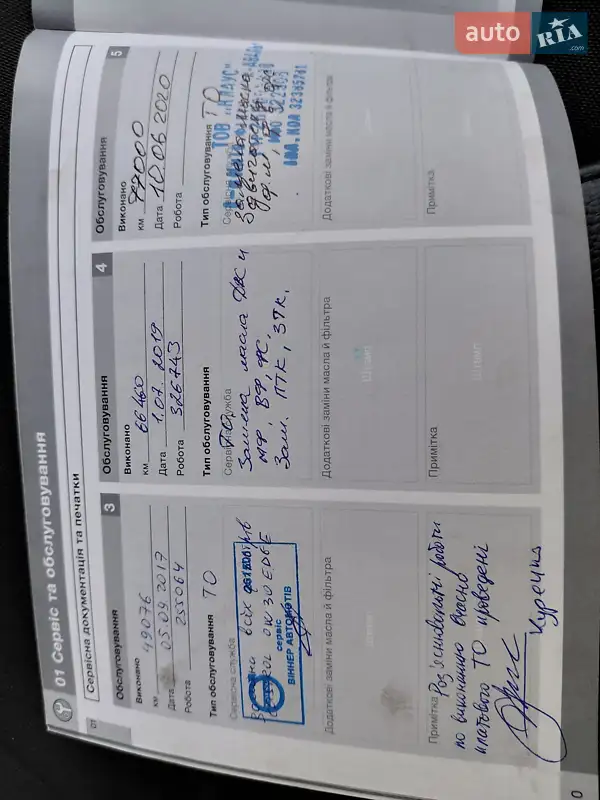 auto RIA .com
01 Сервіс та обслуговування
Сервісна документація та печатки
01
Обслуговування 3
Виконано 49076
км
Дата 05.09.2017
Робота 255064
Тип обслуговування ТО
Сервісна служба
всіх
0W30
сервіс
ВІННЕР АВТОМОТІВ
Додаткові заміни масла й фільтра
Штамп
Примітка Роз'яснювальні роботи
по виконанню вчасно
платового ТО проведені
Курецка
Обслуговування 4
Виконано
км 66460
Дата 1.07.2019
Робота 326743
Тип обслуговування
ТО
Сервісна служба
Замена масла ДЖ и
МФ, ВФ, ФС,
Зам. ПТК, ЗТК.
Додаткові заміни масла й фільтра
Штамп
Примітка
Штамп
Обслуговування 5
Виконано
км 77000
Дата 10.06.2020
Робота
Тип обслуговування ТО
Сервісна
ТОВ "КЛАУС"
КОД 32385741
Додаткові заміни масла й фільтра
Примітка
0